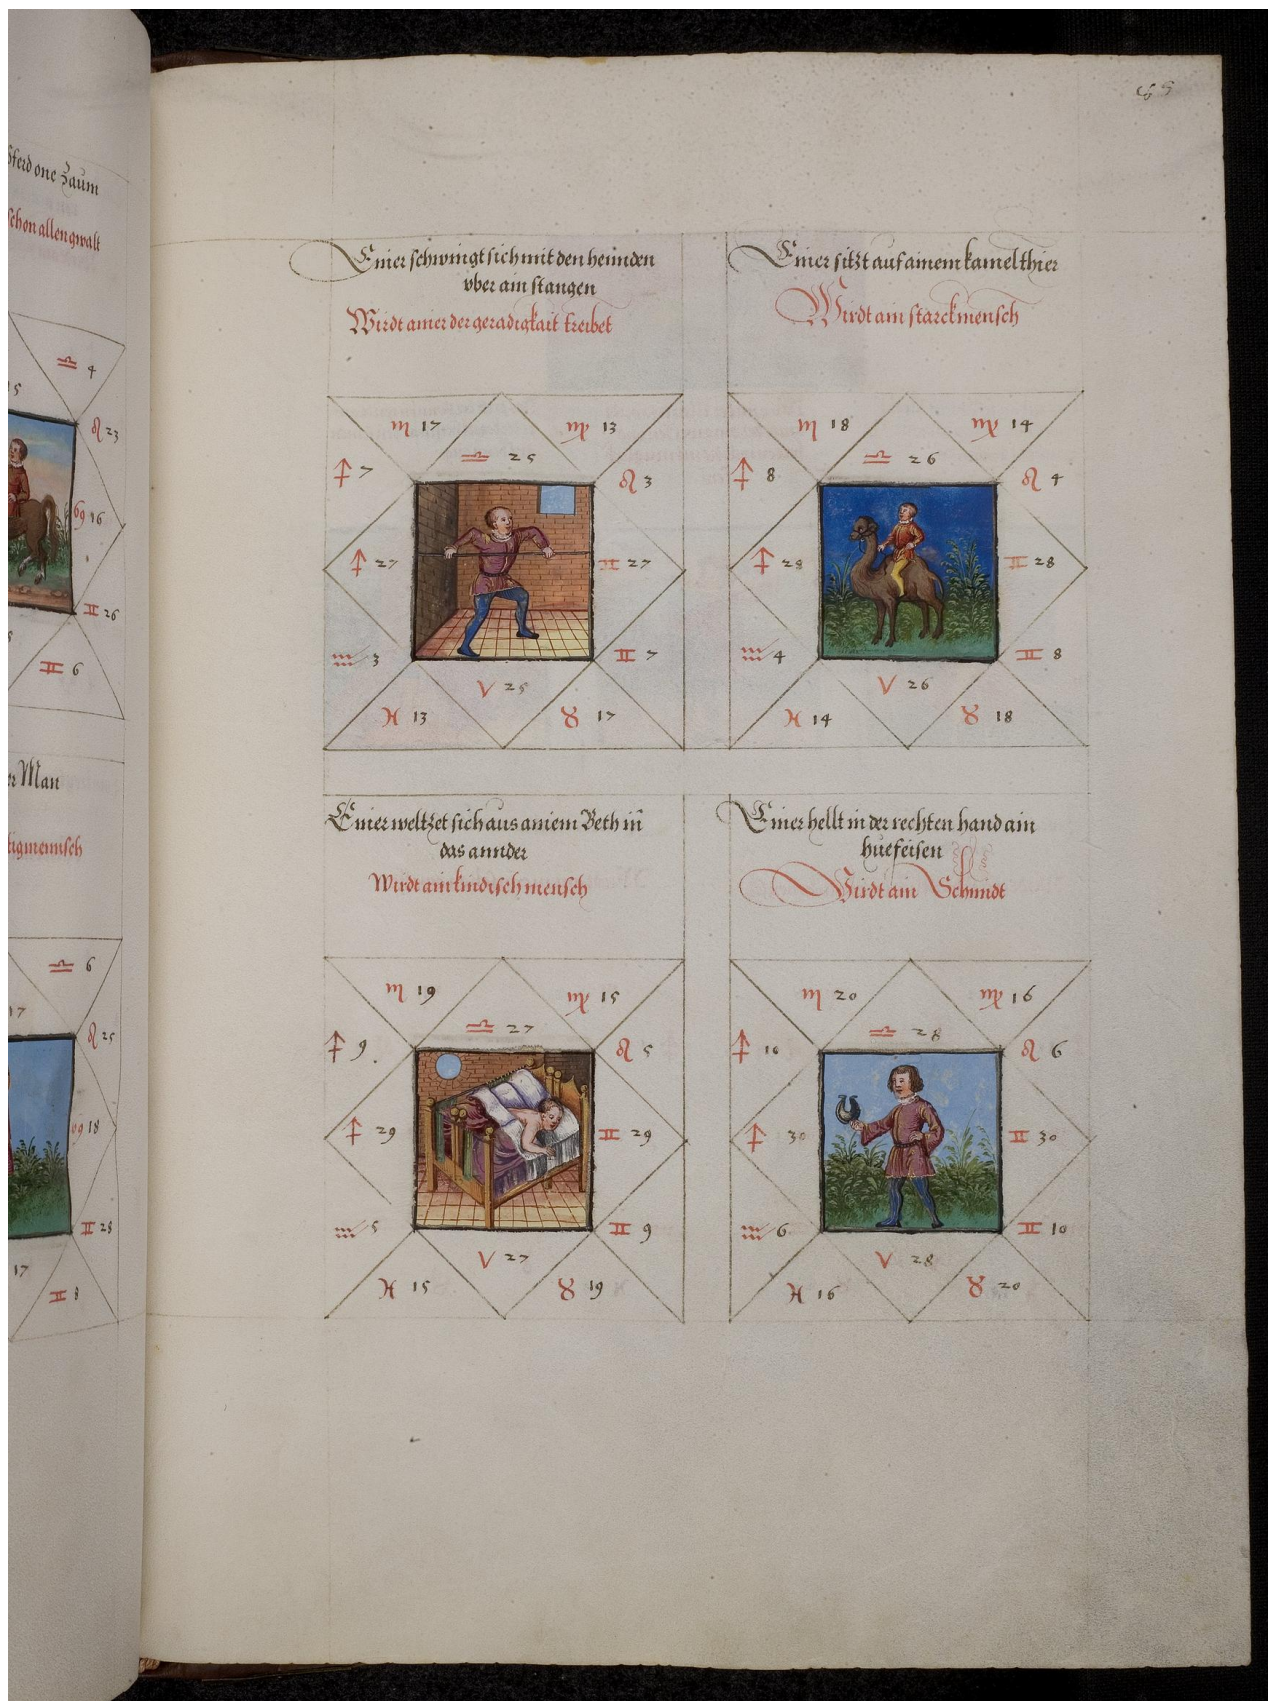 Pferd one Zaum
schon allen gwalt
♎ 4
♌ 23
♋ 16
♊ 26
♊ 6
Man
♎ 6
♌ 25
♋ 18
♊ 28
17
♊ 8
Einer schwingt sich mit den hennden
vber ain stangen
Wirdt ainer der geradigkait treibet
♏ 17
♍ 13
♎ 25
♐ 7
♌ 3
♐ 27
♊ 27
♒ 3
♊ 7
♈ 25
♓ 13
♉ 17
Einer sitzt auf ainem kamelthier
Wirdt ain starck mensch
♏ 18
♍ 14
♎ 26
♐ 8
♌ 4
♐ 28
♊ 28
♒ 4
♊ 8
♈ 26
♓ 14
♉ 18
Einer weltzet sich aus ainem Beth in
das annder
Wirdt ain kindisch mensch
♏ 19
♍ 15
♎ 27
♐ 9
♌ 5
♐ 29
♊ 29
♒ 5
♊ 9
♈ 27
♓ 15
♉ 19
Einer hellt in der rechten hand ain
huefeisen
Wirdt ain Schmidt
♏ 20
♍ 16
♎ 28
♐ 10
♌ 6
♐ 30
♊ 30
♒ 6
♊ 10
♈ 28
♓ 16
♉ 20